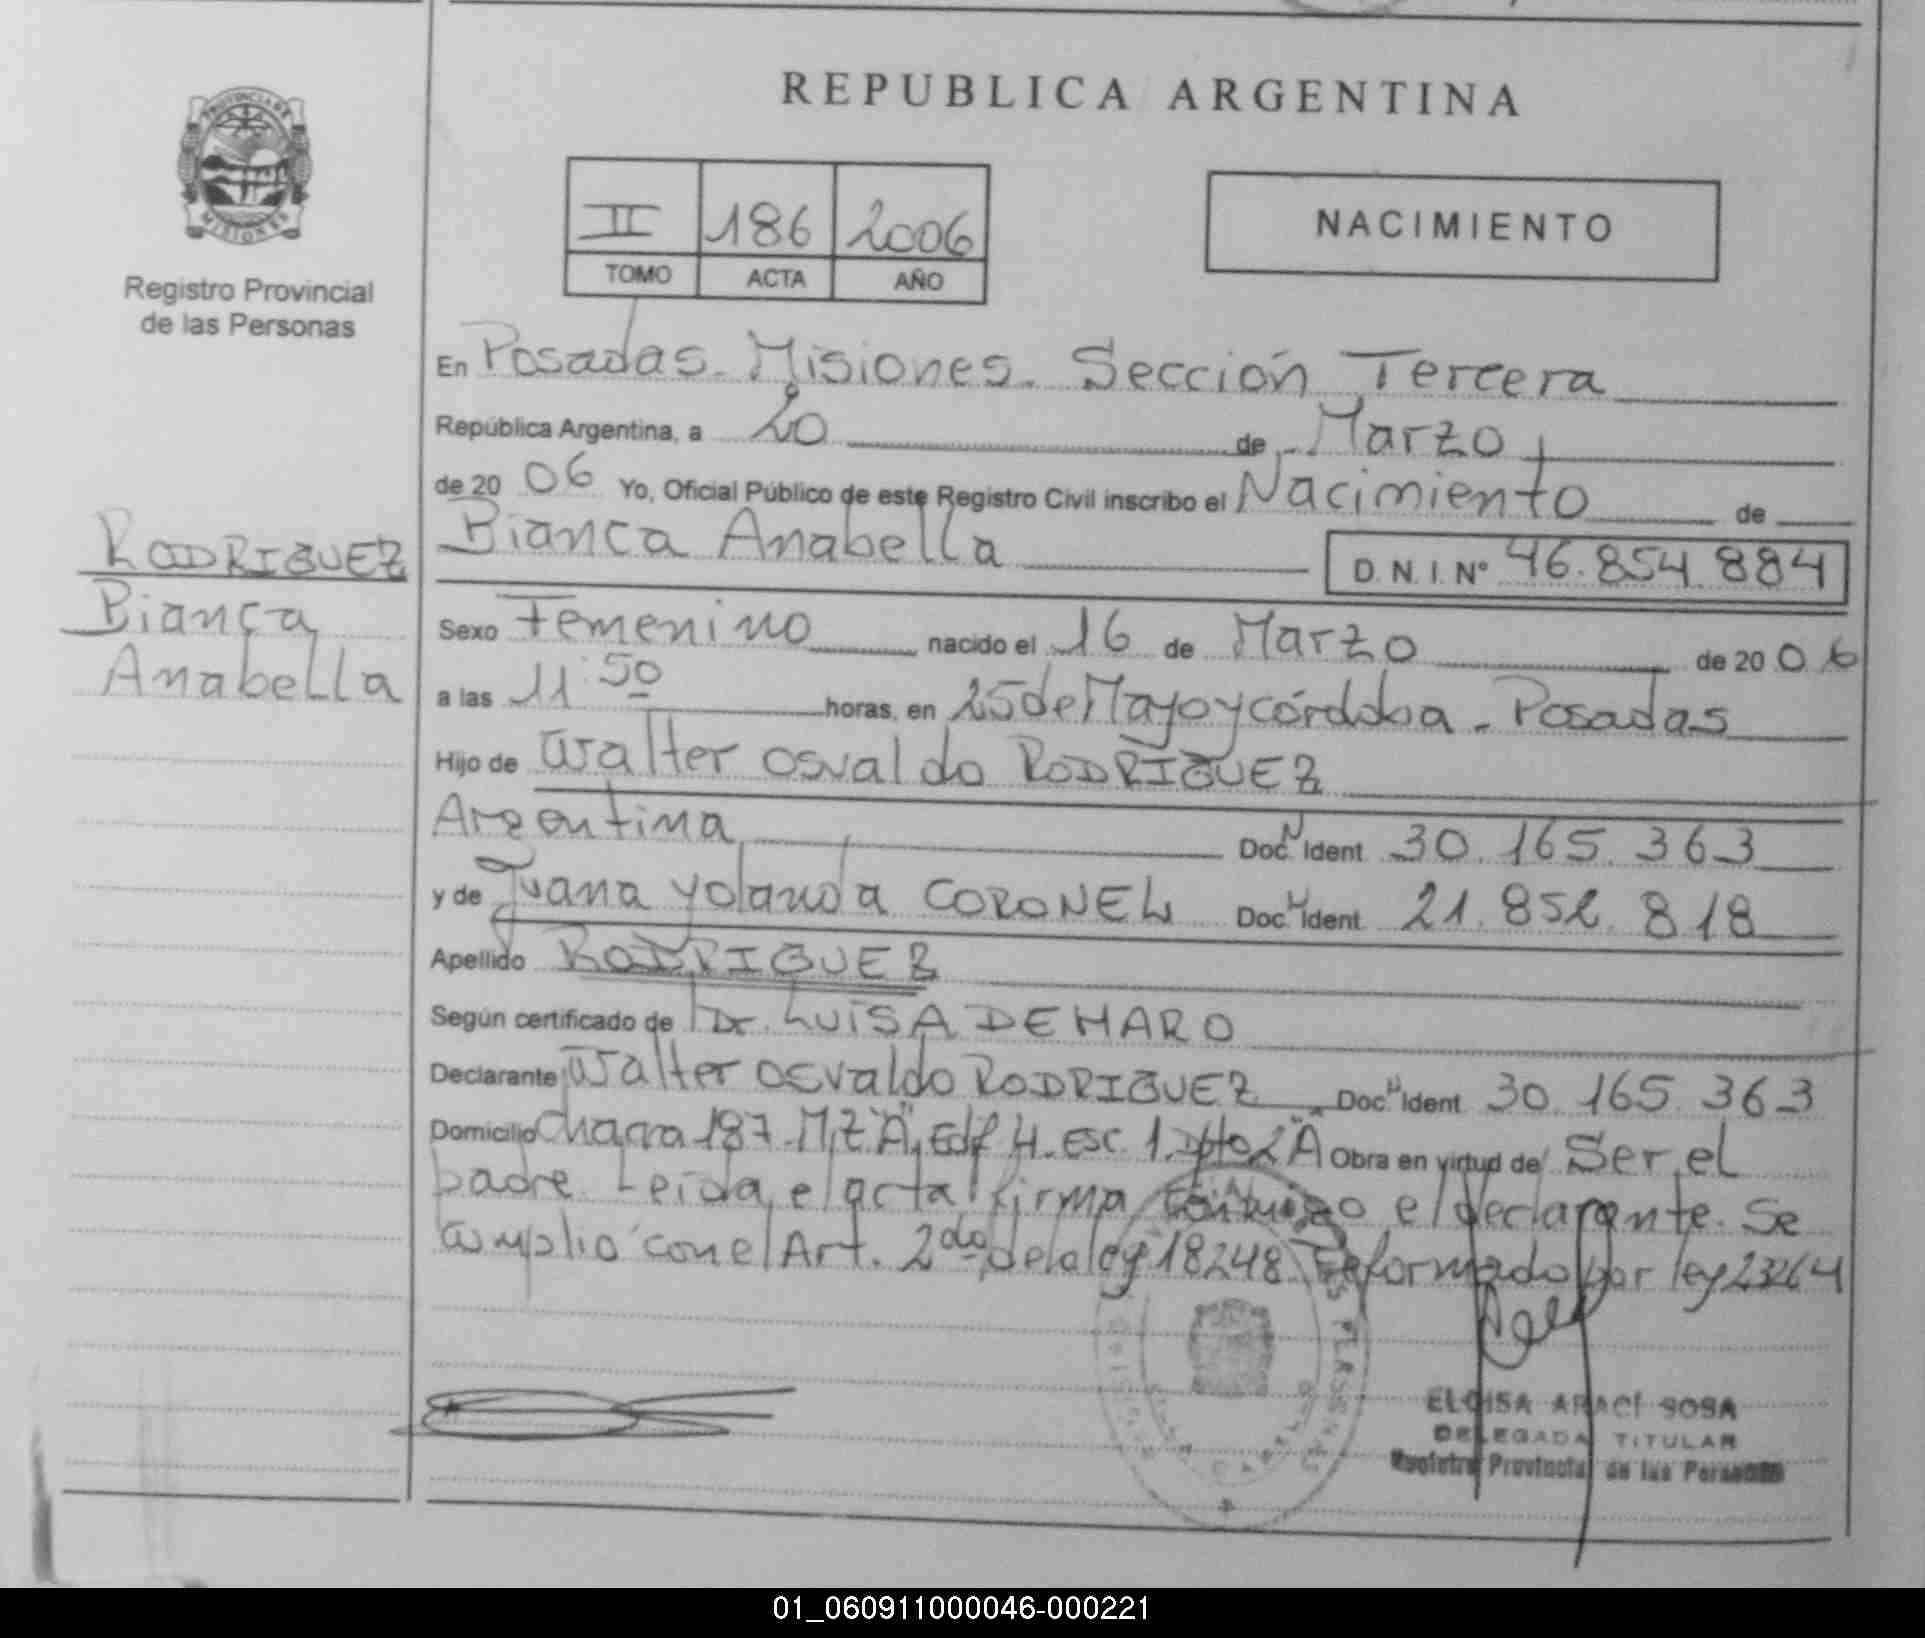 PROVINCIA DE
MISIONES
Registro Provincial
de las Personas
RODRIGUEZ
Bianca
Anabella
REPUBLICA ARGENTINA
II 186 2006
TOMO ACTA AÑO
NACIMIENTO
En Posadas. Misiones. Sección Tercera
República Argentina, a 20 de Marzo
de 20 06 Yo, Oficial Público de este Registro Civil inscribo el Nacimiento de
Bianca Anabella D.N.I. Nº 46.854.884
Sexo Femenino nacido el 16 de Marzo de 20 06
a las 11:50 horas, en 25 de Mayo y córdoba - Posadas
Hijo de Walter Osvaldo RODRIGUEZ
Argentina Doc. Ident 30.165.363
y de Juana Yolanda CORONEL Doc. Ident 21.852.818
Apellido RODRIGUEZ
Según certificado de Dr. LUISA DE HARO
Declarante Walter Osvaldo RODRIGUEZ Doc. Ident 30.165.363
Domicilio Chacra 187. MZ "A", Edf H. Esc. 1. Dpto 2 "A" Obra en virtud de Ser el
padre. Leída el acta firma conmigo el declarante. Se
cumplió con el Art. 2do de la ley 18248 reformado por ley 23264
ELOISA ARACÍ SOSA
DELEGADA TITULAR
Registro Provincial de las Personas
01_060911000046-000221